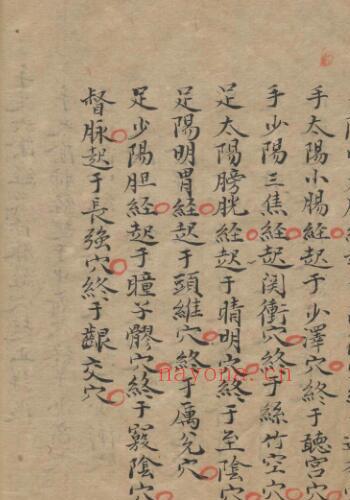 手太陽小腸経起于少澤穴終于聽宮穴
手少陽三焦経起関衝穴終于絲竹空穴
足太陽膀胱経起于睛明穴終于至陰穴
足陽明胃経起于頭維穴終于厲兌穴
足少陽胆経起于瞳子髎穴終于竅陰穴
督脉起于長強穴終于齦交穴
nayona.cn